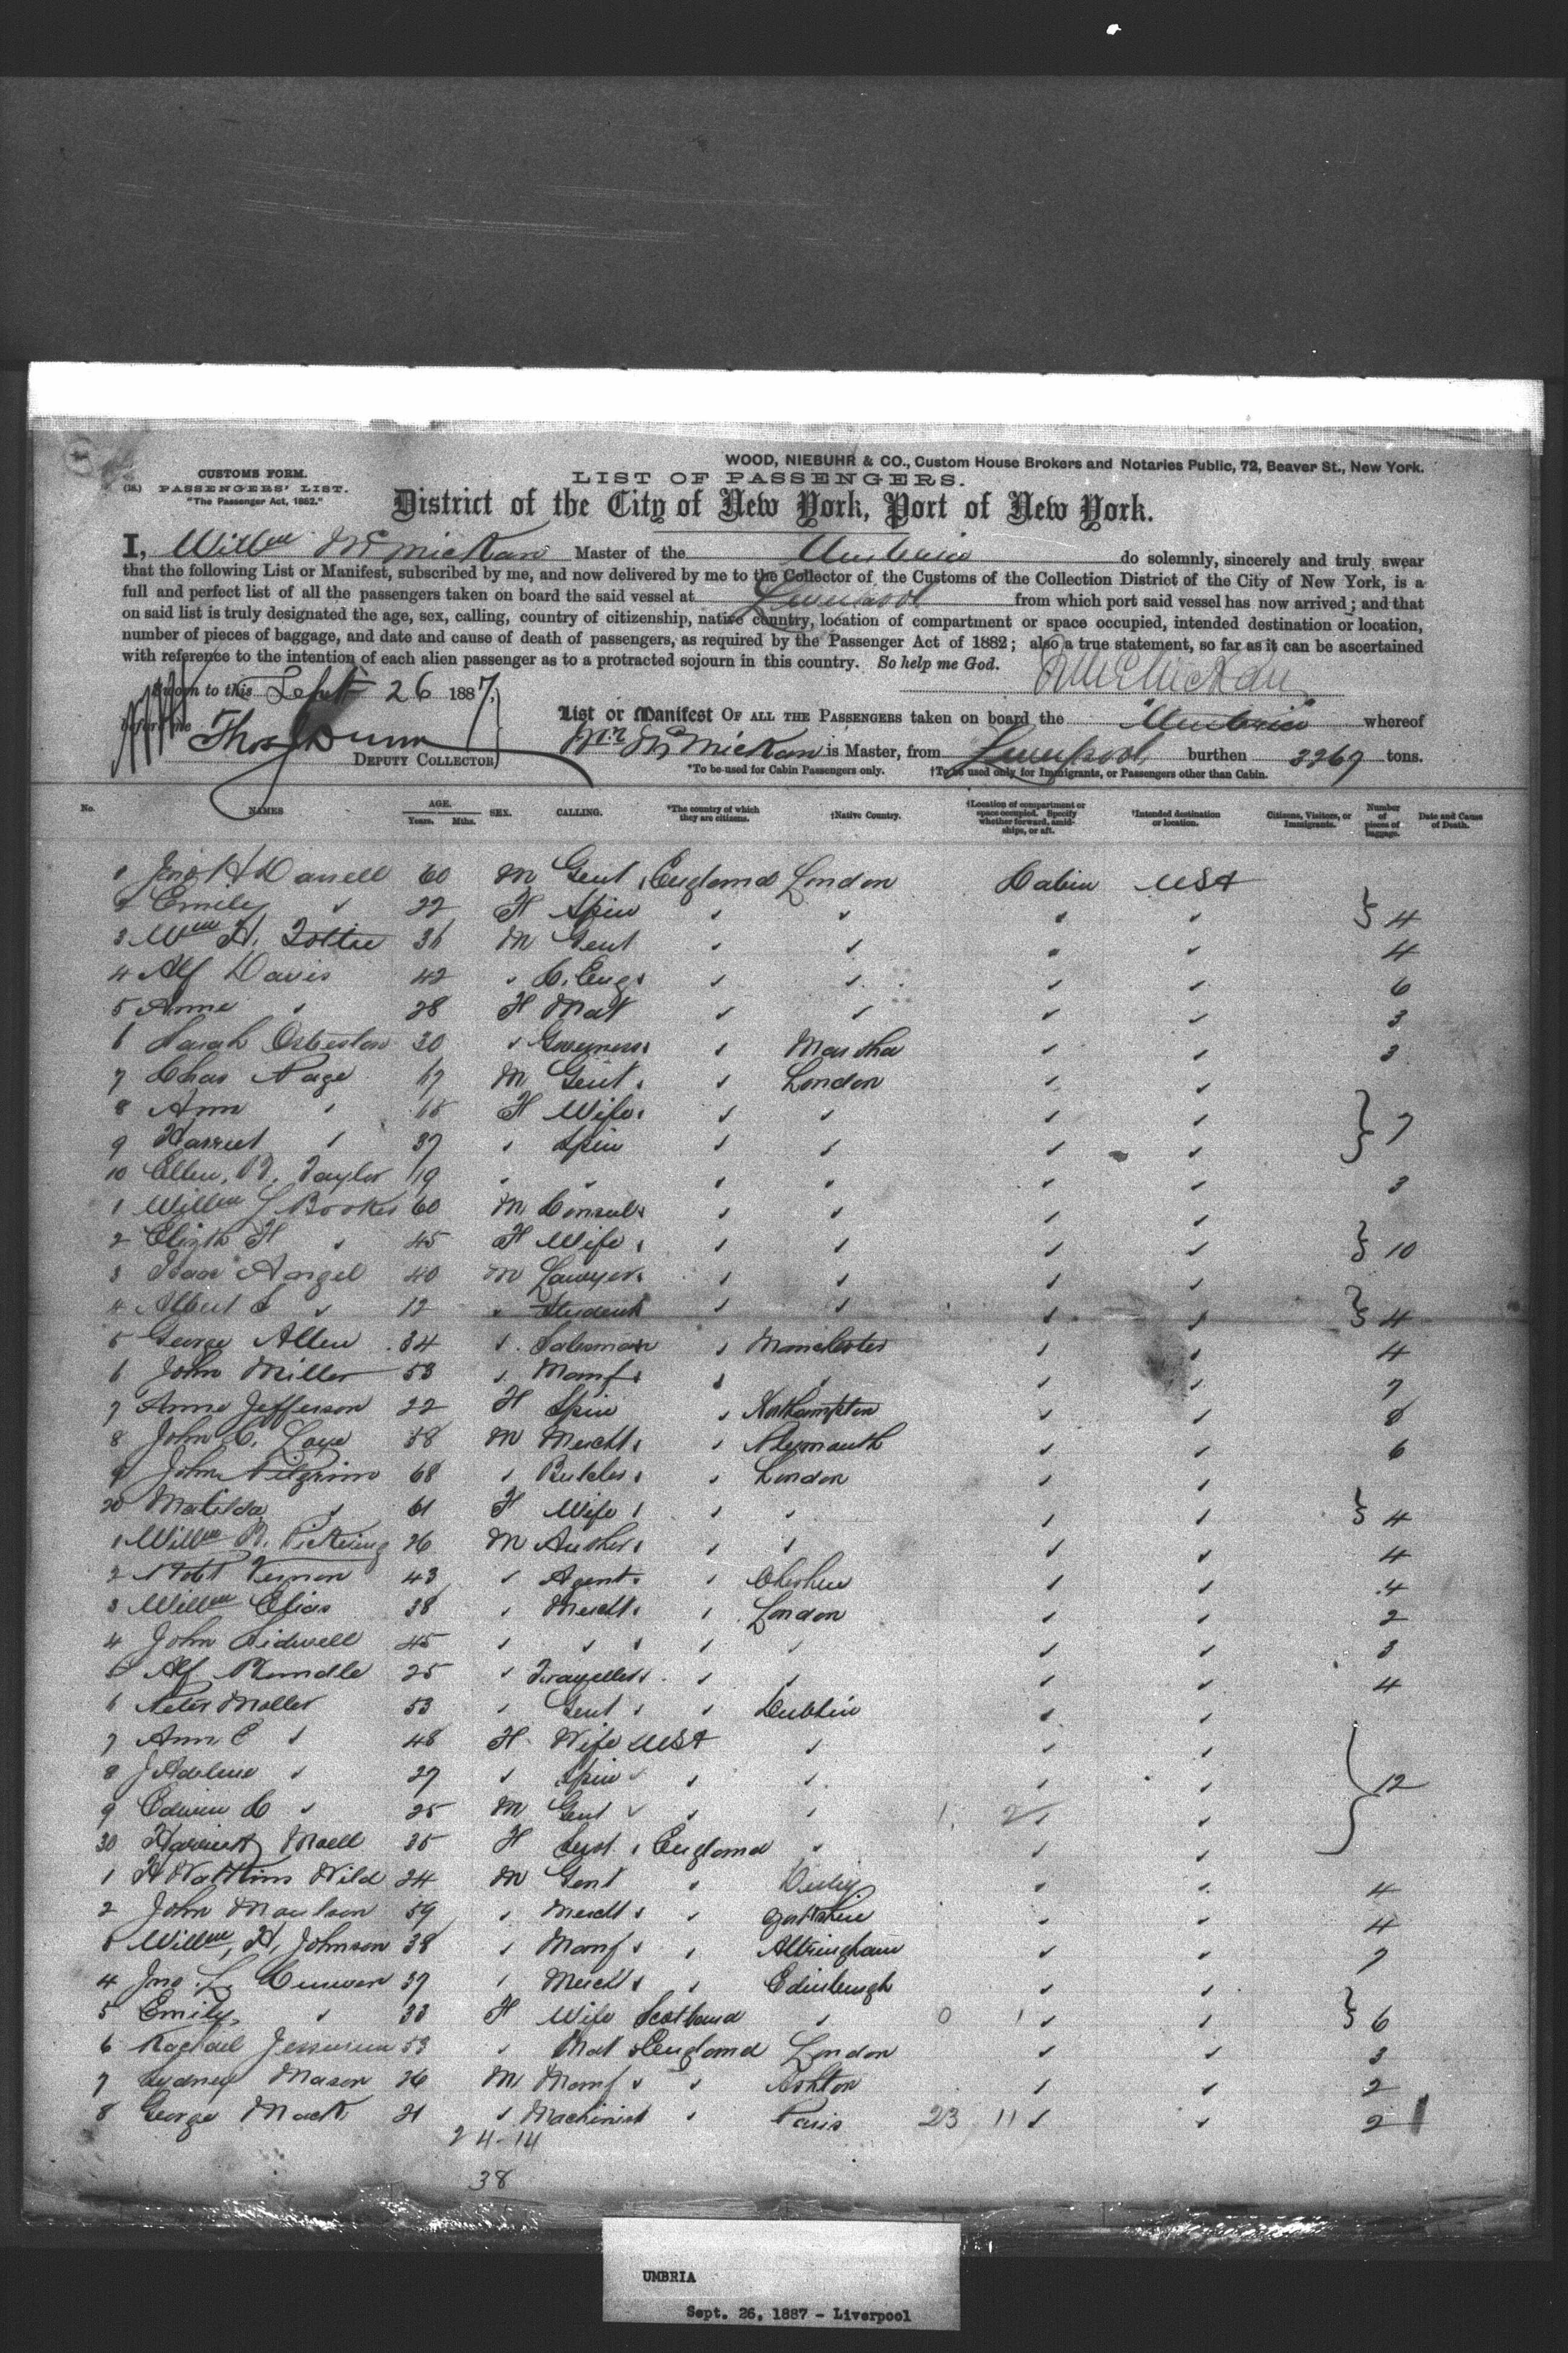 WOOD, NIEBUHR & CO., Custom House Brokers and Notaries Public, 72, Beaver St., New York.
CUSTOMS FORM.
LIST OF PASSENGERS.
PASSENGERS' LIST.
"The Passenger Act, 1882."
District of the City of New York, Port of New York.
I, Willm McMickan Master of the Umbria do solemnly, sincerely and truly swear
that the following List or Manifest, subscribed by me, and now delivered by me to the Collector of the Customs of the Collection District of the City of New York, is a
full and perfect list of all the passengers taken on board the said vessel at Liverpool from which port said vessel has now arrived; and that
on said list is truly designated the age, sex, calling, country of citizenship, native country, location of compartment or space occupied, intended destination or location,
number of pieces of baggage, and date and cause of death of passengers, as required by the Passenger Act of 1882; also a true statement, so far as it can be ascertained
with reference to the intention of each alien passenger as to a protracted sojourn in this country. So help me God.
Sworn to this Sept 26 1887,
before me Thos J Dunn
DEPUTY COLLECTOR
List or Manifest OF ALL THE PASSENGERS taken on board the "Umbria" whereof
Wm McMickan is Master, from Liverpool burthen tons.
*To be used for Cabin Passengers only. †To be used only for Immigrants, or Passengers other than Cabin.
No. NAMES AGE. Years. Mths. SEX. CALLING. *The country of which they are citizens. †Native Country. †Location of compartment or space occupied. Specify whether forward, amidships, or aft. *Intended destination or location. Citizens, Visitors, or Immigrants. Number of pieces of baggage. Date and Cause of Death.
1 Jno H Darrell 60 M Gent England London Cabin USA
2 Emily 22 F Spin 4
3 Wm H. 36 M Gent 4
4 Alf Davis 42 C. Eng 6
5 Anne 28 F Mat 3
6 Sarah 30 Governess 3
7 Chas Page 67 M Gent London
8 Ann F Wife 7
9 Harriet 37 Spin
10 Ellen Taylor 19 3
1 Willm Booker 60 M Consul
2 Elizth H 45 F Wife 10
3 Isaac Angel 40 M Lawyer
4 Albert S 12 Student 4
5 George Allen 34 Salesman Manchester 4
6 John Miller 53 Manf 7
7 Anne Jefferson 22 F Spin Northampton
8 John C. 38 M Mercht Plymouth 6
9 John Pilgrim 68 Butcher London
20 Matilda 61 F Wife 4
1 Willm R. Pickering 26 M Author 4
2 Robt Vernon 43 Agent Cheshire 4
3 Willm Elias 38 Mercht London 2
4 John Sidwell 45 3
5 Alf 25 Traveller 4
6 Peter Moller 53 Gent Dublin
7 Ann E 48 F Wife USA
8 J Adeline 27 Spin 12
9 Edwin C 25 M Gent
30 Harriett 35 F England
1 H Watkins Wild 24 M Gent Derby 4
2 John 59 Mercht Yorkshire 4
3 Willm H. Johnson 38 Manf Altringham 7
4 Jno. L. Curwen 37 Mercht Edinburgh
5 Emily 33 F Wife Scotland 0 1 6
6 53 Mat England London 3
7 Sydney Mason 26 M Manf Ashton 2
8 George Mack 21 Machinist Paris 23 11 2
24-14
38
UMBRIA
Sept. 26, 1887 - Liverpool